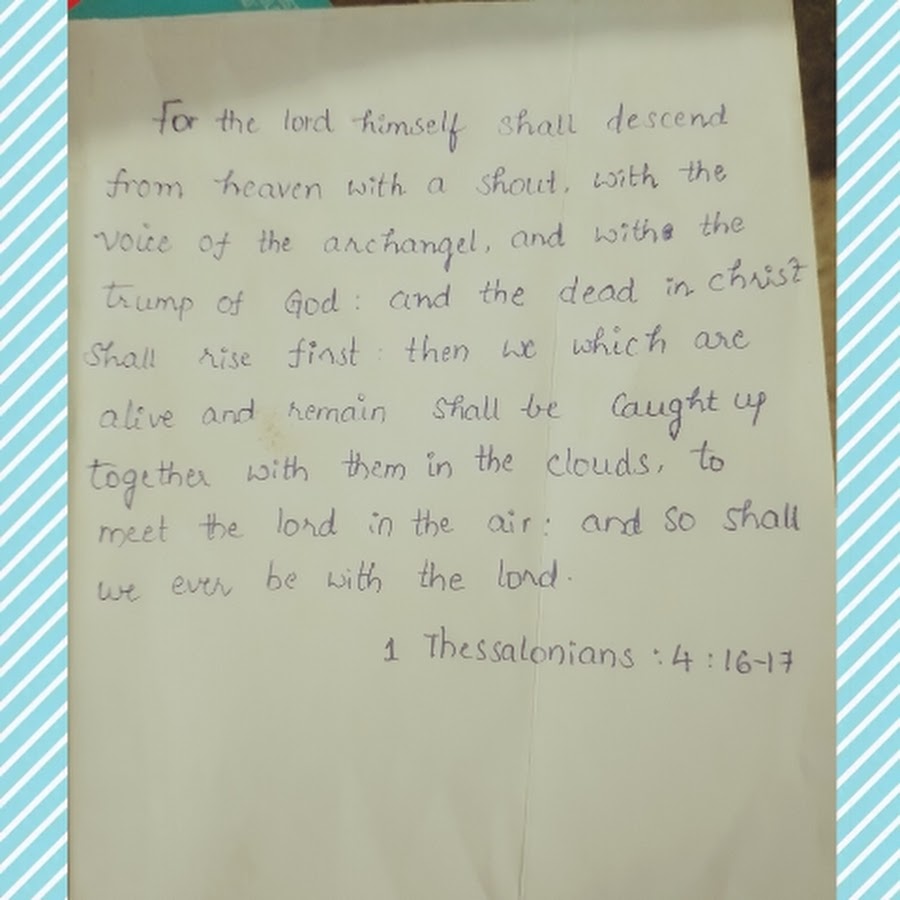 For the lord himself shall descend
from heaven with a shout, with the
voice of the archangel, and with the
trump of God : and the dead in christ
Shall rise first : then we which are
alive and remain shall be Caught up
together with them in the clouds, to
meet the lord in the air : and so shall
we ever be with the lord.
1 Thessalonians : 4 : 16-17